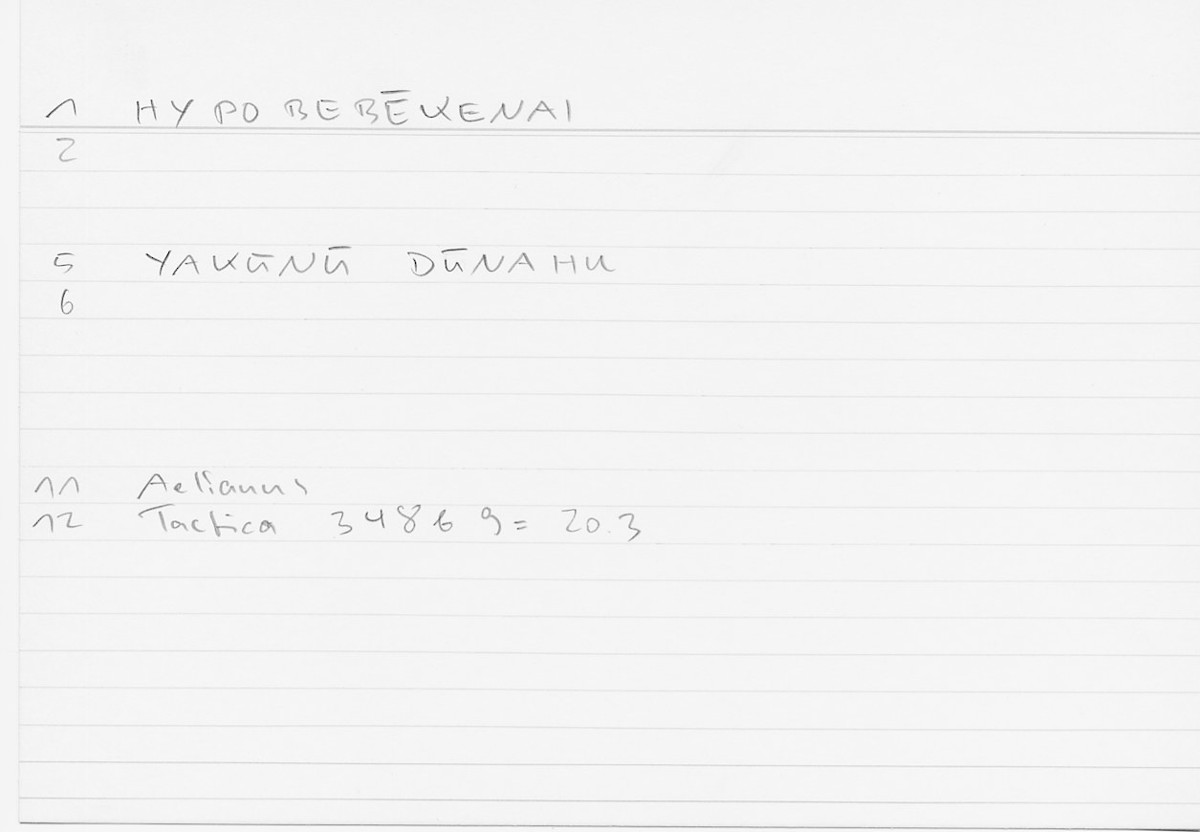 1 HYPO BEBĒKENAI
2
5 YAKŪNŪ DŪNAHU
6
11 Aelianus
12 Tactica 348 6 9 = 20.3